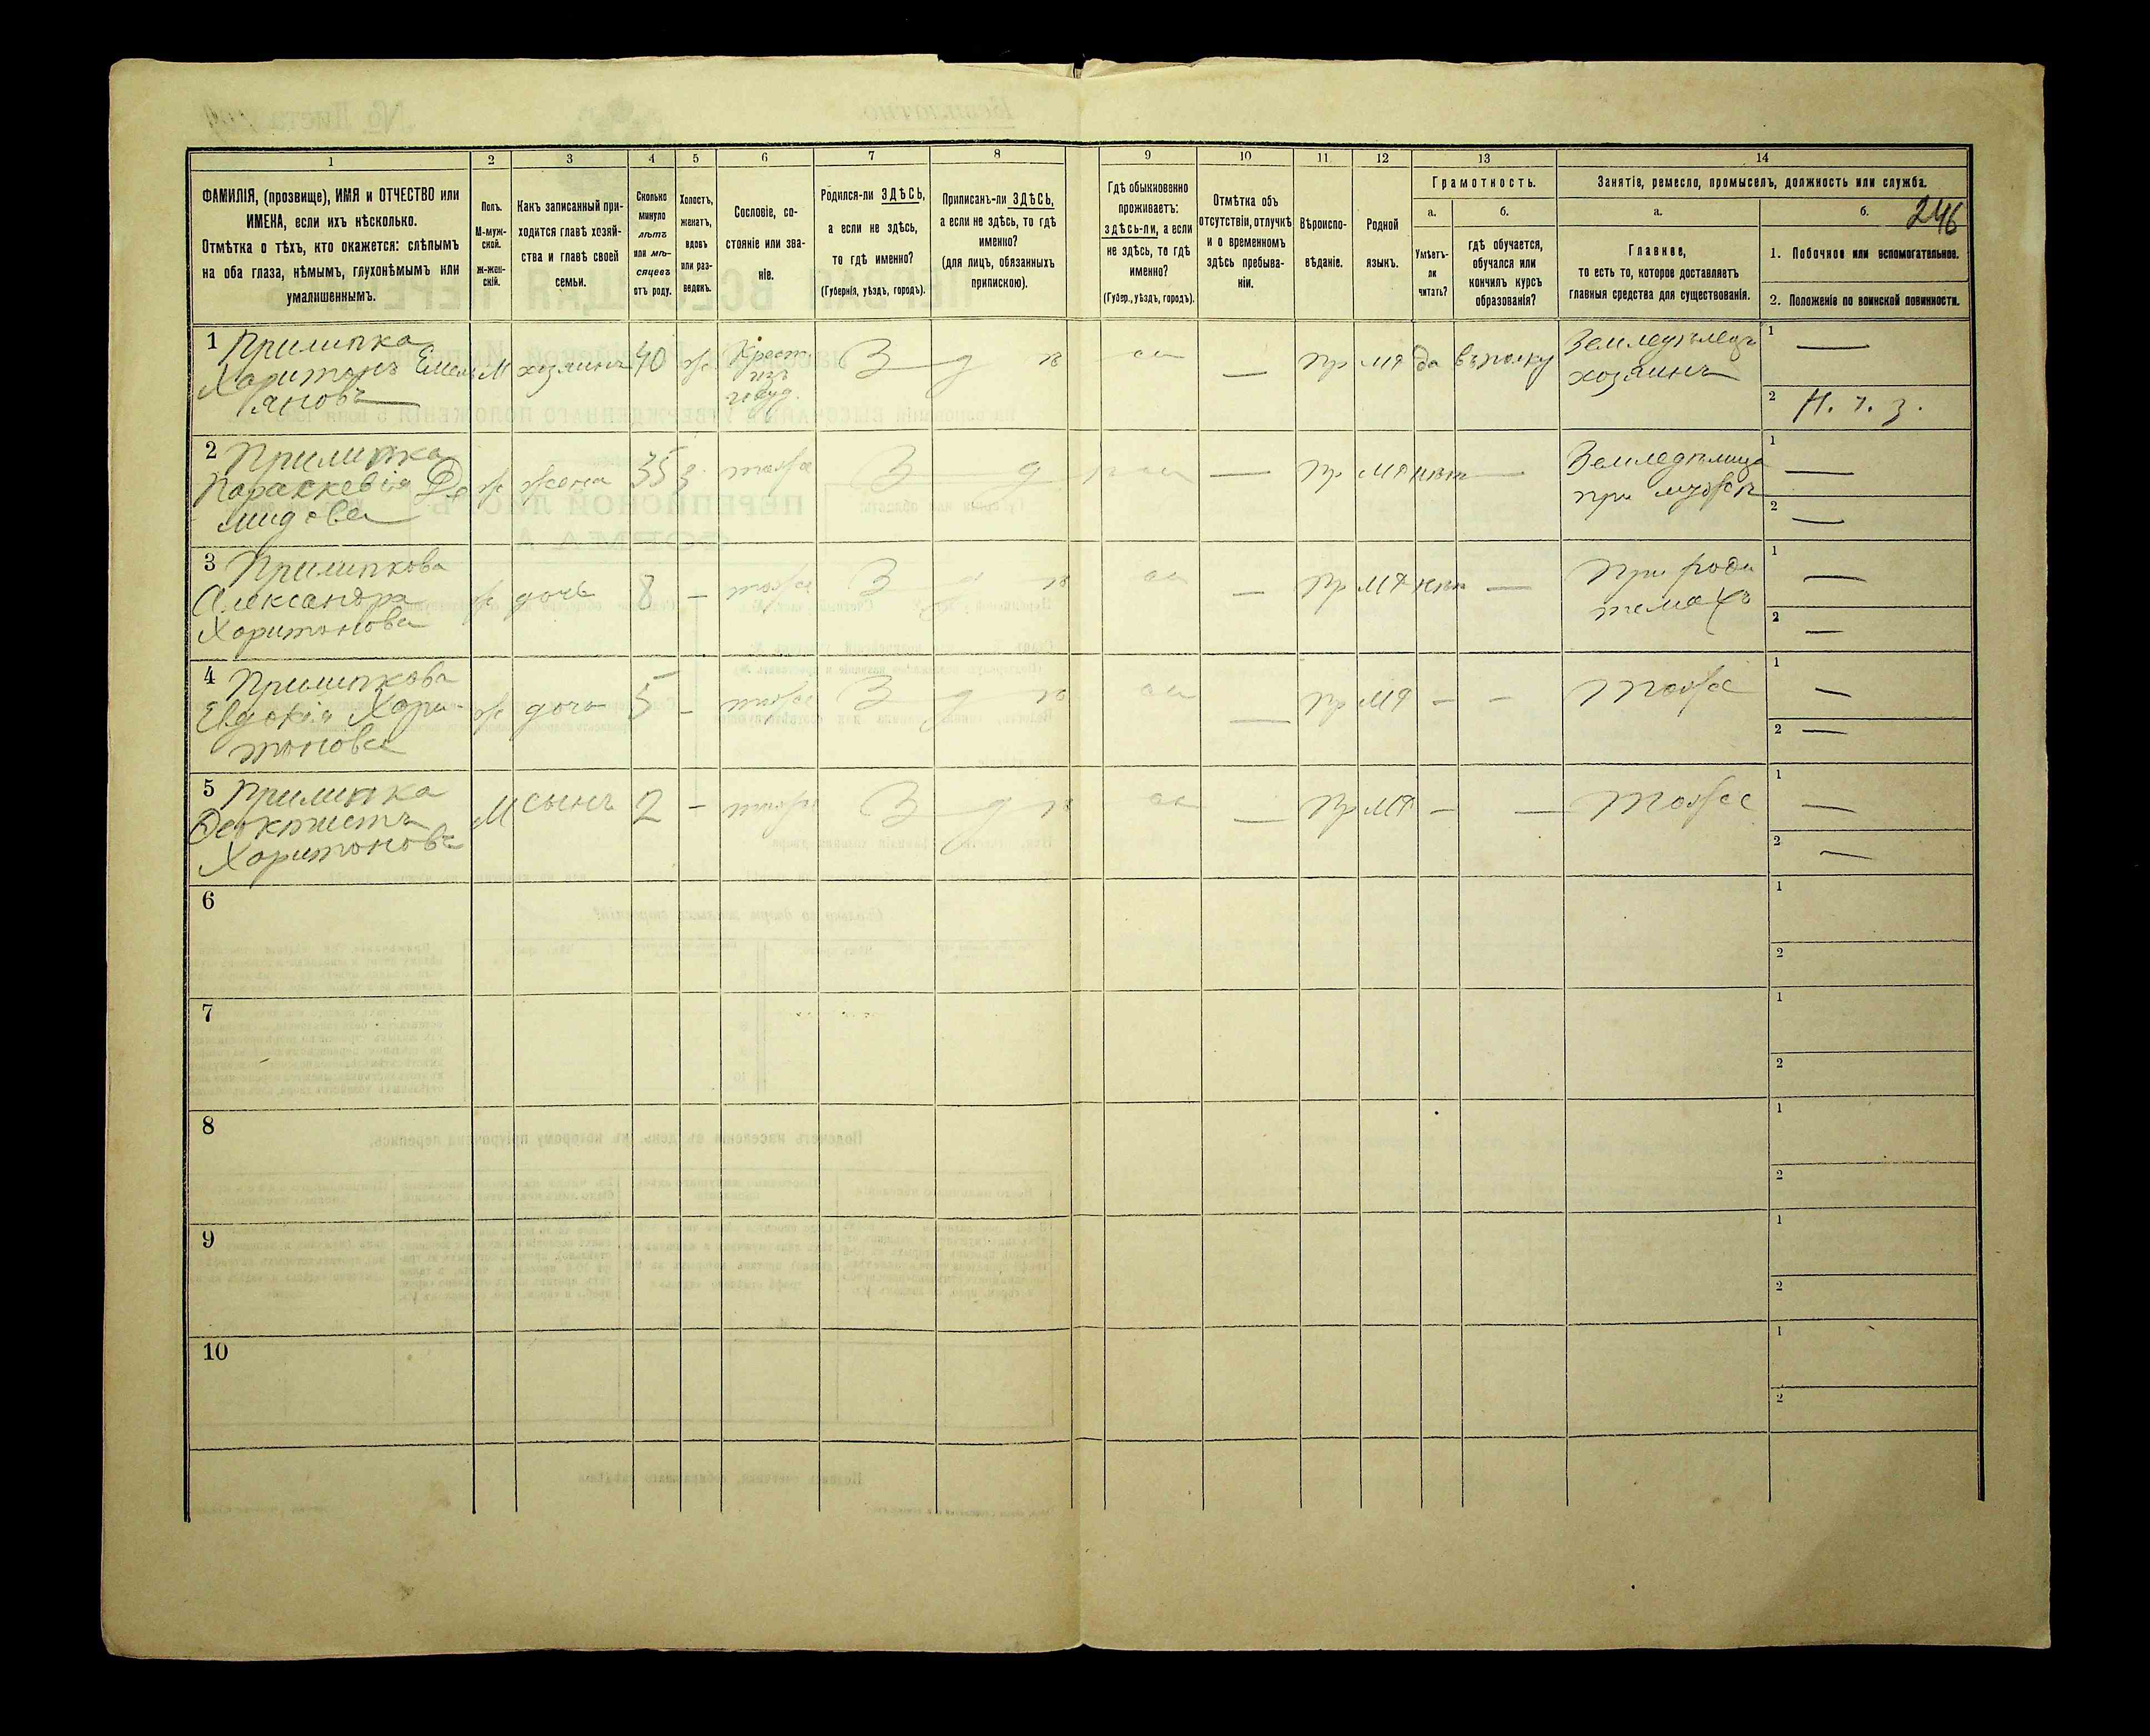 1 2 3 4 5 6 7 8 9 10 11 12 13 14
ФАМИЛІЯ, (прозвище), ИМЯ и ОТЧЕСТВО или
ИМЕНА, если ихъ нѣсколько.
Отмѣтка о тѣхъ, кто окажется: слѣпымъ
на оба глаза, нѣмымъ, глухонѣмымъ или
умалишеннымъ.
Полъ.
М-муж-
ской.
ж-жен-
скій.
Какъ записанный при-
ходится главѣ хозяй-
ства и главѣ своей
семьи.
Сколько
минуло
лѣтъ
или мѣ-
сяцевъ
отъ роду.
Холостъ,
женатъ,
вдовъ
или раз-
веденъ.
Сословіе, со-
стояніе или зва-
ніе.
Родился-ли ЗДѢСЬ,
а если не здѣсь,
то гдѣ именно?
(Губернія, уѣздъ, городъ).
Приписанъ-ли ЗДѢСЬ,
а если не здѣсь, то гдѣ
именно?
(для лицъ, обязанныхъ
припискою).
Гдѣ обыкновенно
проживаетъ:
здѣсь-ли, а если
не здѣсь, то гдѣ
именно?
(Губер., уѣздъ, городъ).
Отмѣтка объ
отсутствіи, отлучкѣ
и о временномъ
здѣсь пребыва-
ніи.
Вѣроиспо-
вѣданіе.
Родной
языкъ.
Грамотность.
а.
Умѣетъ-
ли
читать?
б.
гдѣ обучается,
обучался или
кончилъ курсъ
образованія?
Занятіе, ремесло, промыселъ, должность или служба.
а.
Главное,
то есть то, которое доставляетъ
главныя средства для существованія.
б.
246
1. Побочное или вспомогательное.
2. Положеніе по воинской повинности.
1 Прилипка
Харитонъ Емель
яновъ
М хозяинъ 40 ж.
Крест.
изъ
госуд.
пр мя да въ полку
Земледѣлецъ
хозяинъ
1 —
2 Н. ч. з.
2 Прилипка
Параскевія
ж жена 35 з. тоже — пр мя нѣт —
Земледѣлица
при мужѣ
1 —
2 —
3 Прилипкова
Александра
Харитонова
ж дочь 8 — тоже — пр мя нѣт —
При роди
теляхъ
1 —
2 —
4 Прилипкова
Евдокія Хари-
тонова
ж дочь 5 — тоже — пр мя — — тоже
1 —
2 —
5 Прилипка
Харитоновъ
М сынъ 2 — тоже — пр мя — — тоже
1 —
2 —
6
1
2
7
1
2
8
1
2
9
1
2
10
1
2